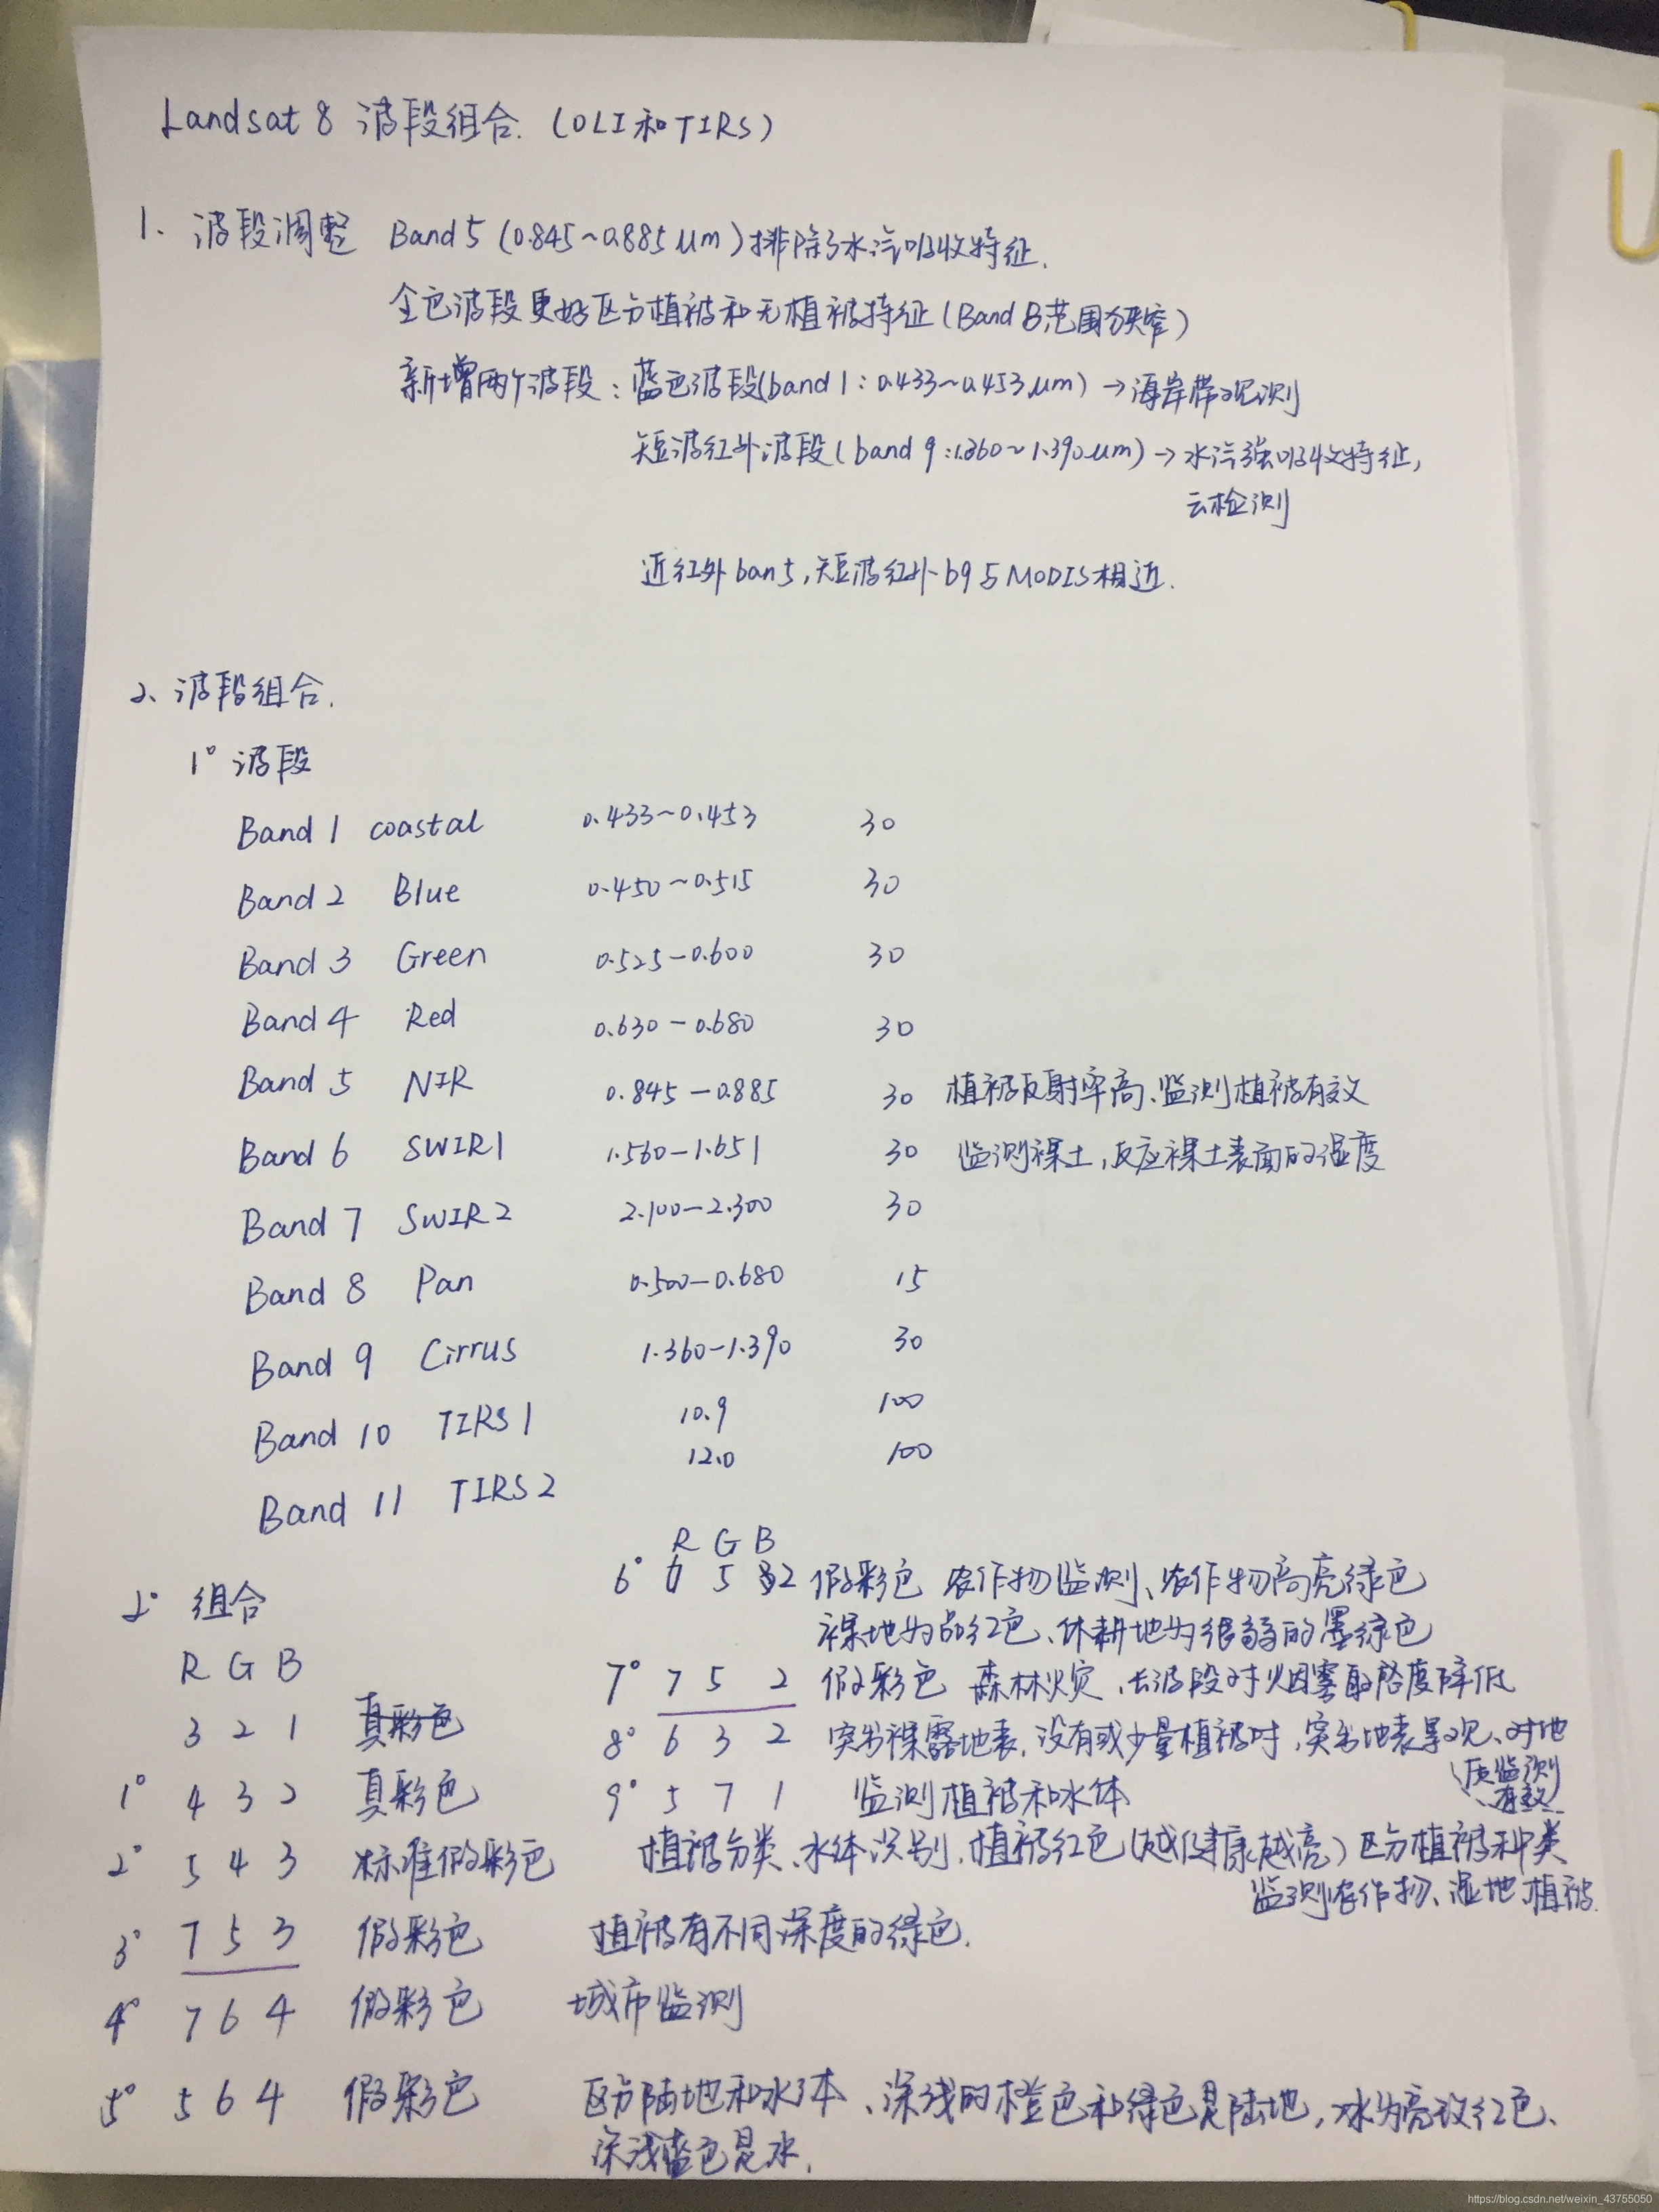 Landsat 8 波段组合. (OLI和TIRS)
1. 波段调整 Band 5 (0.845~0.885 μm) 排除了水汽吸收特征.
全色波段更好区分植被和无植被特征 (Band 8范围较窄)
新增两个波段: 蓝色波段(band 1: 0.433~0.453 μm) → 海岸带观测
短波红外波段(band 9: 1.360~1.390 μm) → 水汽强吸收特征,
云检测
近红外ban5, 短波红外b9与MODIS相近.
2、波段组合.
1° 波段
Band 1 coastal 0.433~0.453 30
Band 2 Blue 0.450~0.515 30
Band 3 Green 0.525-0.600 30
Band 4 Red 0.630-0.680 30
Band 5 NIR 0.845-0.885 30 植被反射率高、监测植被有效
Band 6 SWIR1 1.560-1.651 30 监测裸土, 反应裸土表面的湿度
Band 7 SWIR2 2.100-2.300 30
Band 8 Pan 0.500-0.680 15
Band 9 Cirrus 1.360-1.390 30
Band 10 TIRS1 10.9 100
Band 11 TIRS2 12.0 100
2° 组合
R G B
3 2 1 真彩色
1° 4 3 2 真彩色
2° 5 4 3 标准假彩色 植被分类、水体识别, 植被红色(越健康越亮) 区分植被种类
监测农作物、湿地植被.
3° 7 5 3 假彩色 植被有不同深度的绿色.
4° 7 6 4 假彩色 城市监测
5° 5 6 4 假彩色 区分陆地和水体、深浅的橙色和绿色是陆地, 冰为亮玫红色、
深浅蓝色是水.
R G B
6° 6 5 2 假彩色 农作物监测、农作物高亮绿色
裸地为品红色、休耕地为很弱的墨绿色
7° 7 5 2 假彩色 森林火灾、长波段对烟雾敏感度降低
8° 6 3 2 突出裸露地表, 没有或少量植被时, 突出地表景观、对地
质监测
有效.
9° 5 7 1 监测植被和水体
https://blog.csdn.net/weixin_43755050